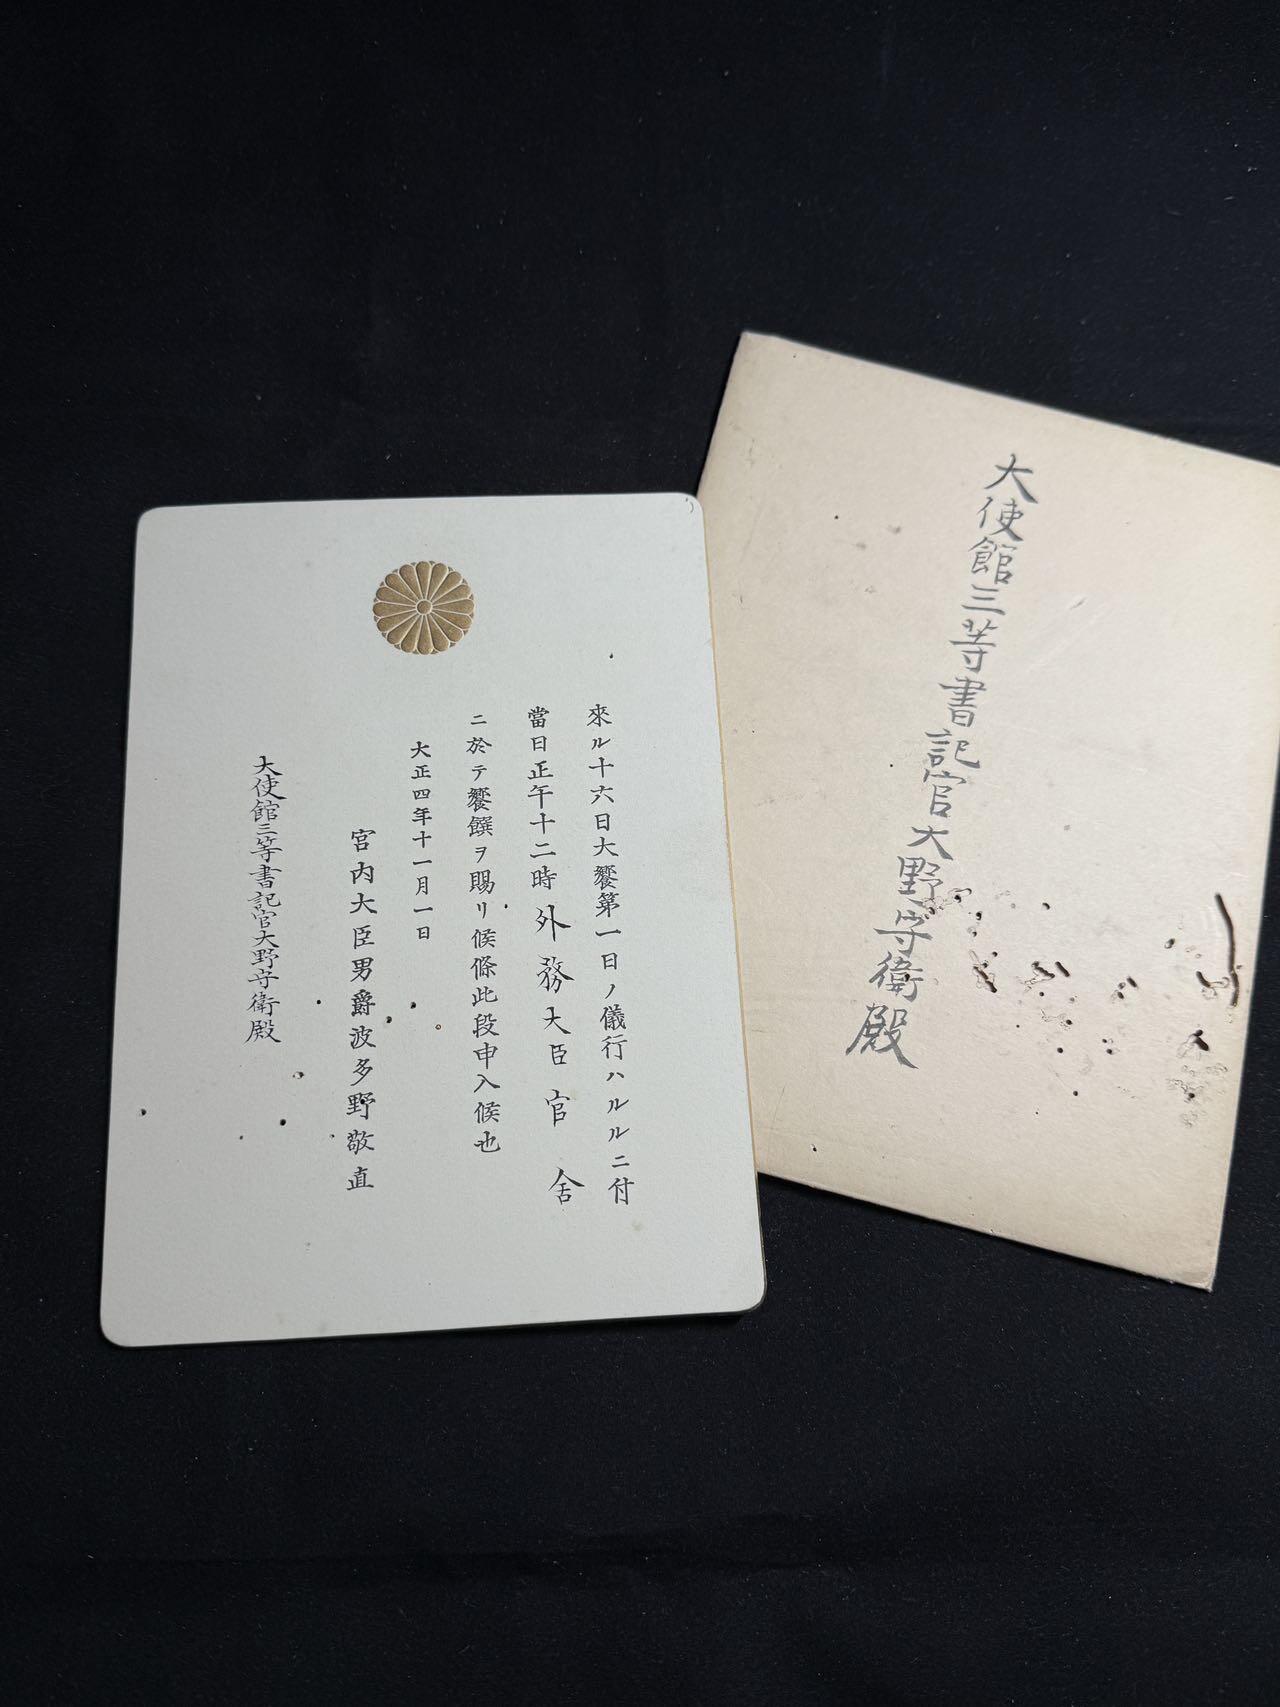 來ル十六日大饗第一日ノ儀行ハルルニ付
當日正午十二時外務大臣官舍
ニ於テ饗饌ヲ賜リ候條此段申入候也
大正四年十一月一日
宮内大臣男爵波多野敬直
大使館三等書記官大野守衛殿
大使館三等書記官大野守衛殿